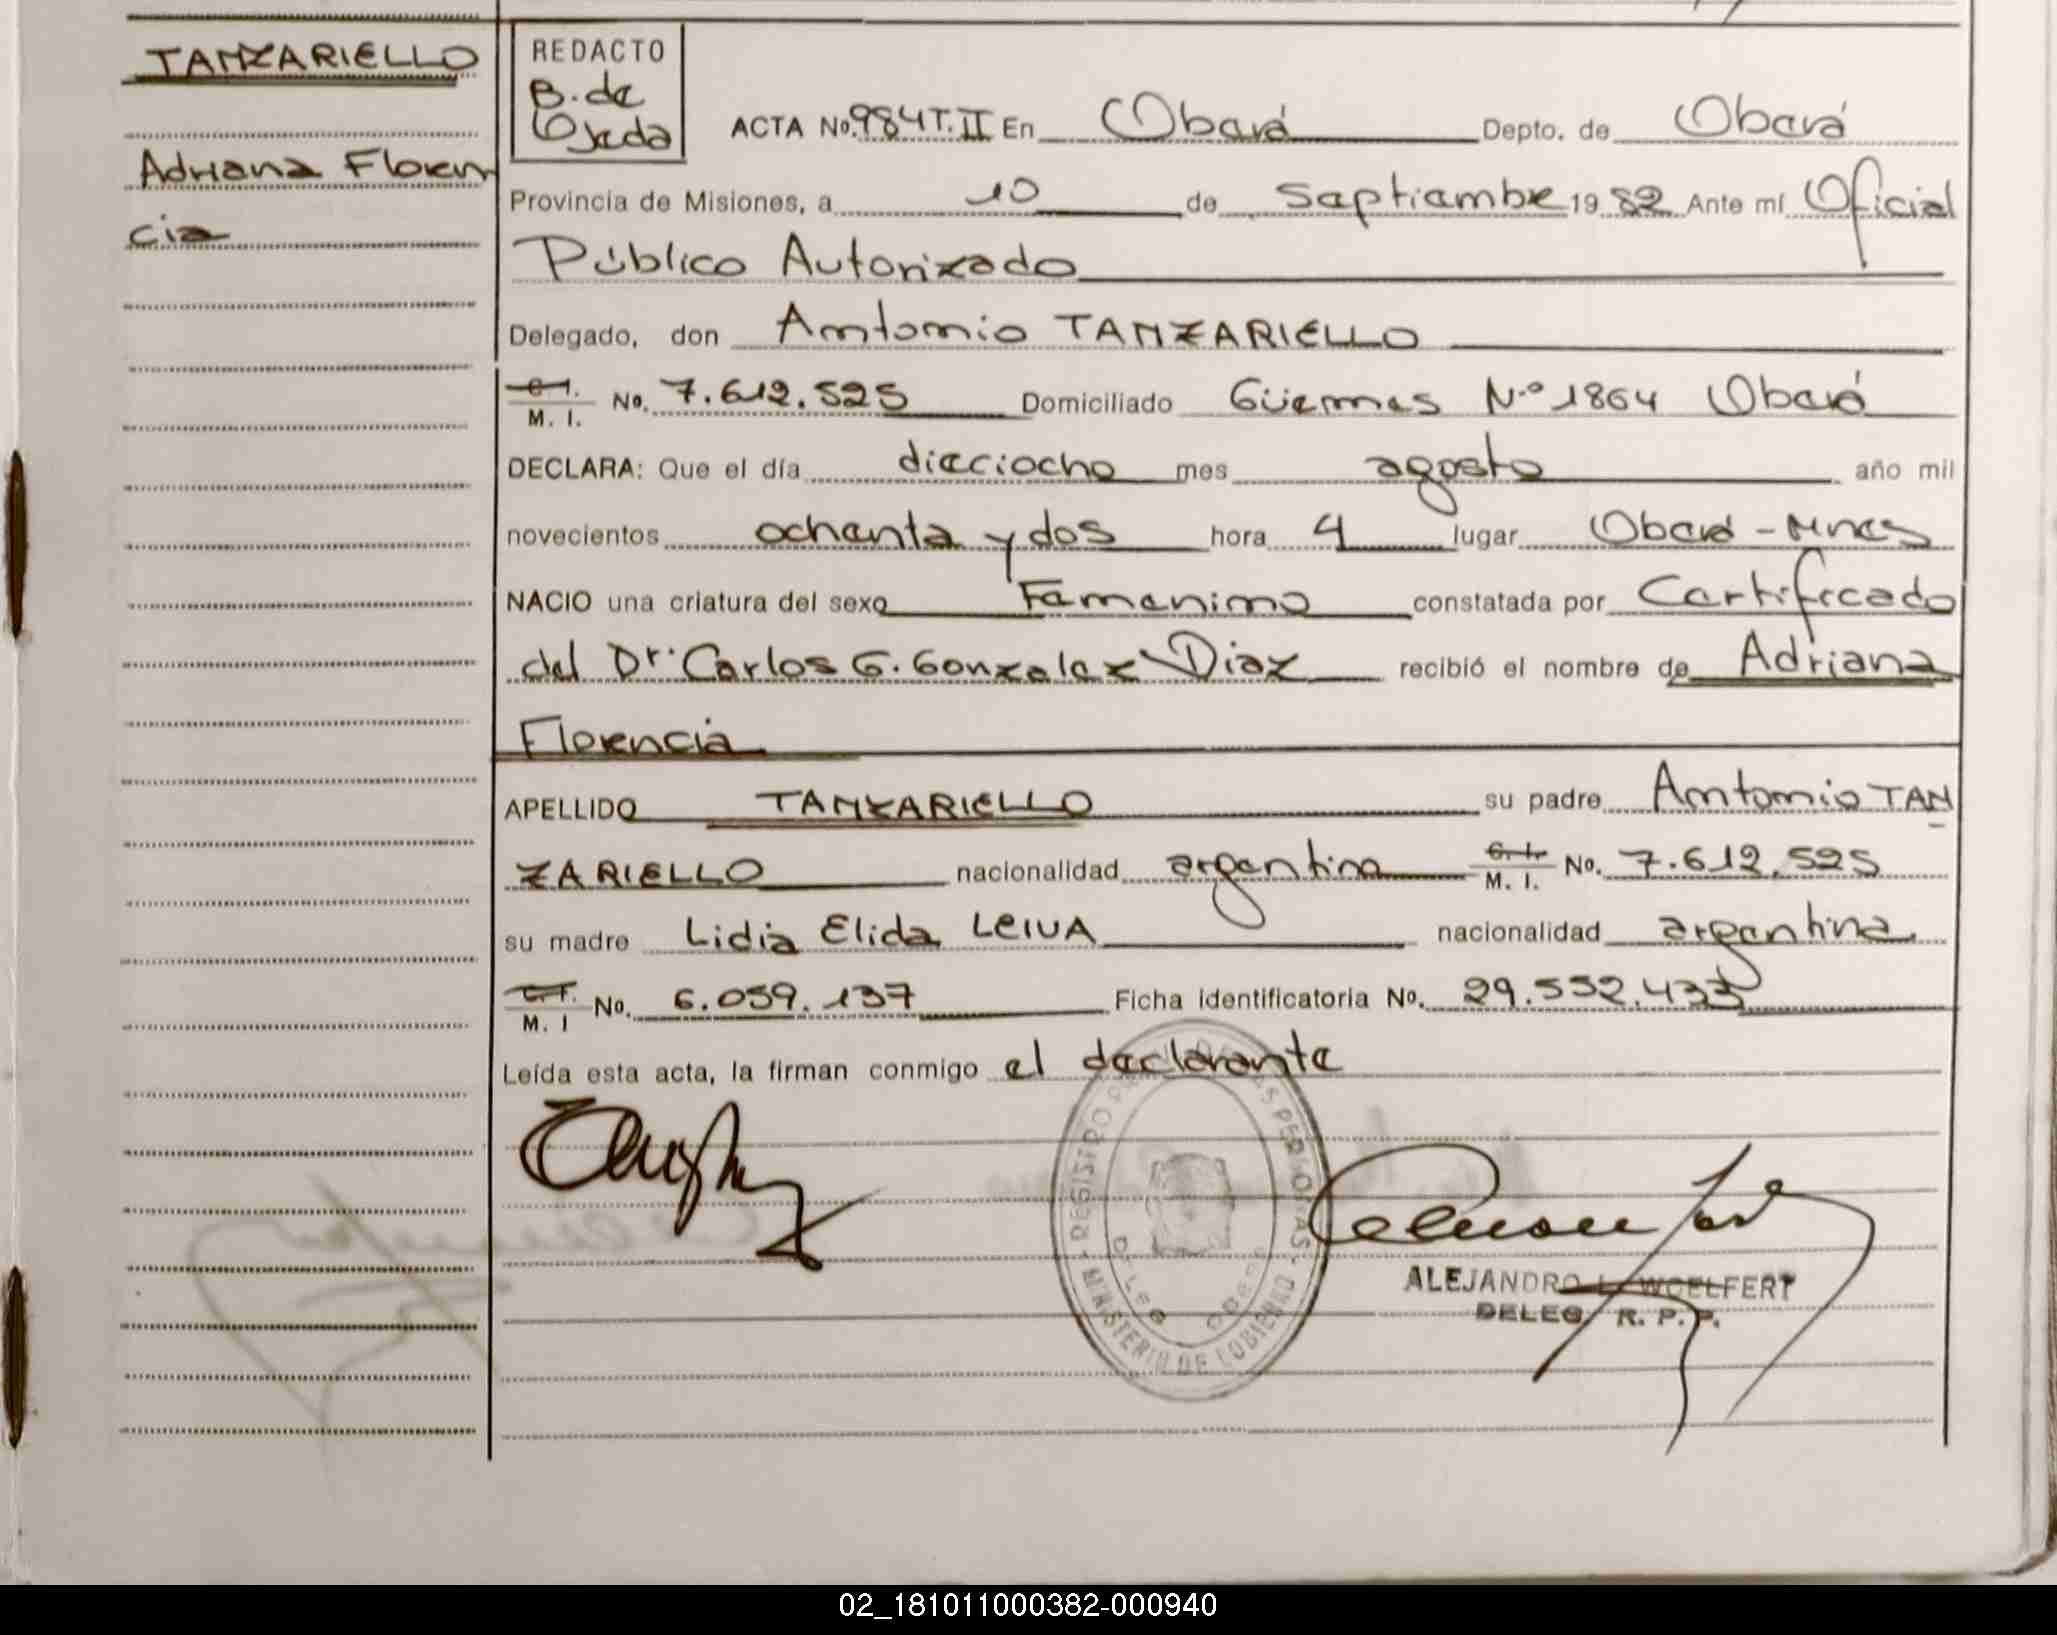 TANZARIELLO
Adriana Floren
cia
REDACTO
B. de
Ojeda
ACTA No. 984 T. II En Oberá Depto. de Oberá
Provincia de Misiones, a 10 de Septiembre 19 82 Ante mí Oficial
Público Autorizado
Delegado, don Antonio TANZARIELLO
C. I.
M. I. No. 7.612.525 Domiciliado Güemes N.º 1864 Oberá
DECLARA: Que el día dieciocho mes agosto año mil
novecientos ochenta y dos hora 4 lugar Oberá - Mnes
NACIO una criatura del sexo Femenino constatada por Certificado
del Dr. Carlos G. Gonzalez Diaz recibió el nombre de Adriana
Florencia
APELLIDO TANZARIELLO su padre Antonio TAN
ZARIELLO nacionalidad argentina C. I.
M. I. No. 7.612.525
su madre Lidia Elida LEIVA nacionalidad argentina
C. I.
M. I No. 6.059.137 Ficha identificatoria No. 29.552.433
Leída esta acta, la firman conmigo el declarante
REGISTRO PERSONAS
MINISTERIO DE GOBIERNO
ALEJANDRO L. WOELFERT
DELEG. R. P. P.
02_181011000382-000940